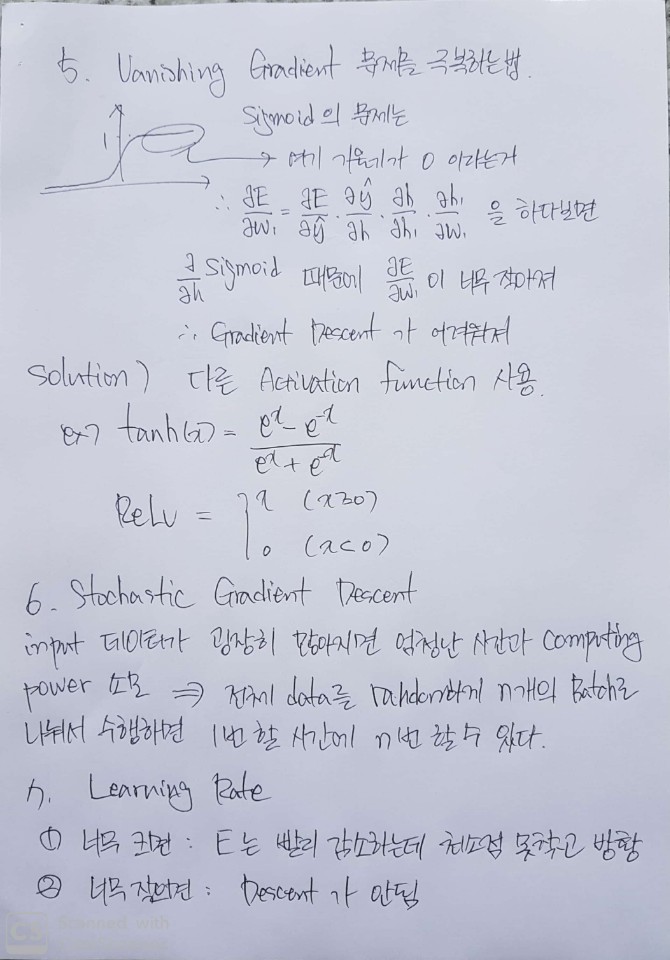 5. Vanishing Gradient 문제를 극복하는법.
Sigmoid의 문제는
1
→ 여기 기울기가 0 이라는거
∴ ∂E/∂w₁ = ∂E/∂ŷ · ∂ŷ/∂h · ∂h/∂h₁ · ∂h₁/∂w₁ 을 하다보면
∂/∂h Sigmoid 때문에 ∂E/∂w₁ 이 너무 작아져
∴ Gradient Descent 가 어려워져
Solution) 다른 Activation function 사용.
ex) tanh(x) = (eˣ - e⁻ˣ)/(eˣ + e⁻ˣ)
ReLu = { x (x≥0)
0 (x<0)
6. Stochastic Gradient Descent
input 데이터가 굉장히 많아지면 엄청난 시간과 computing
power 소모 ⇒ 전체 data를 random하게 n개의 Batch로
나눠서 수행하면 1번 할 시간에 n번 할 수 있다.
7. Learning Rate
① 너무 크면 : E는 빨리 감소하는데 최소점 못찾고 방황
② 너무 작으면 : Descent 가 안됨
CS Scanned with